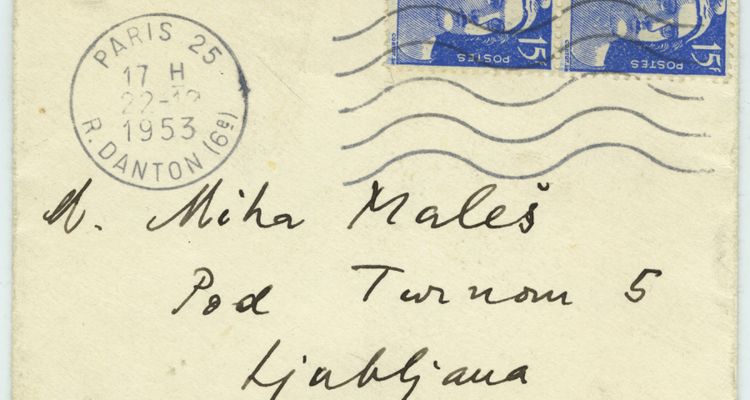 PARIS 25
17 H
22-12
1953
R. DANTON (6e)
15F
POSTES
15F
POSTES
M. Miha Maleš
Pod Turnom 5
Ljubljana